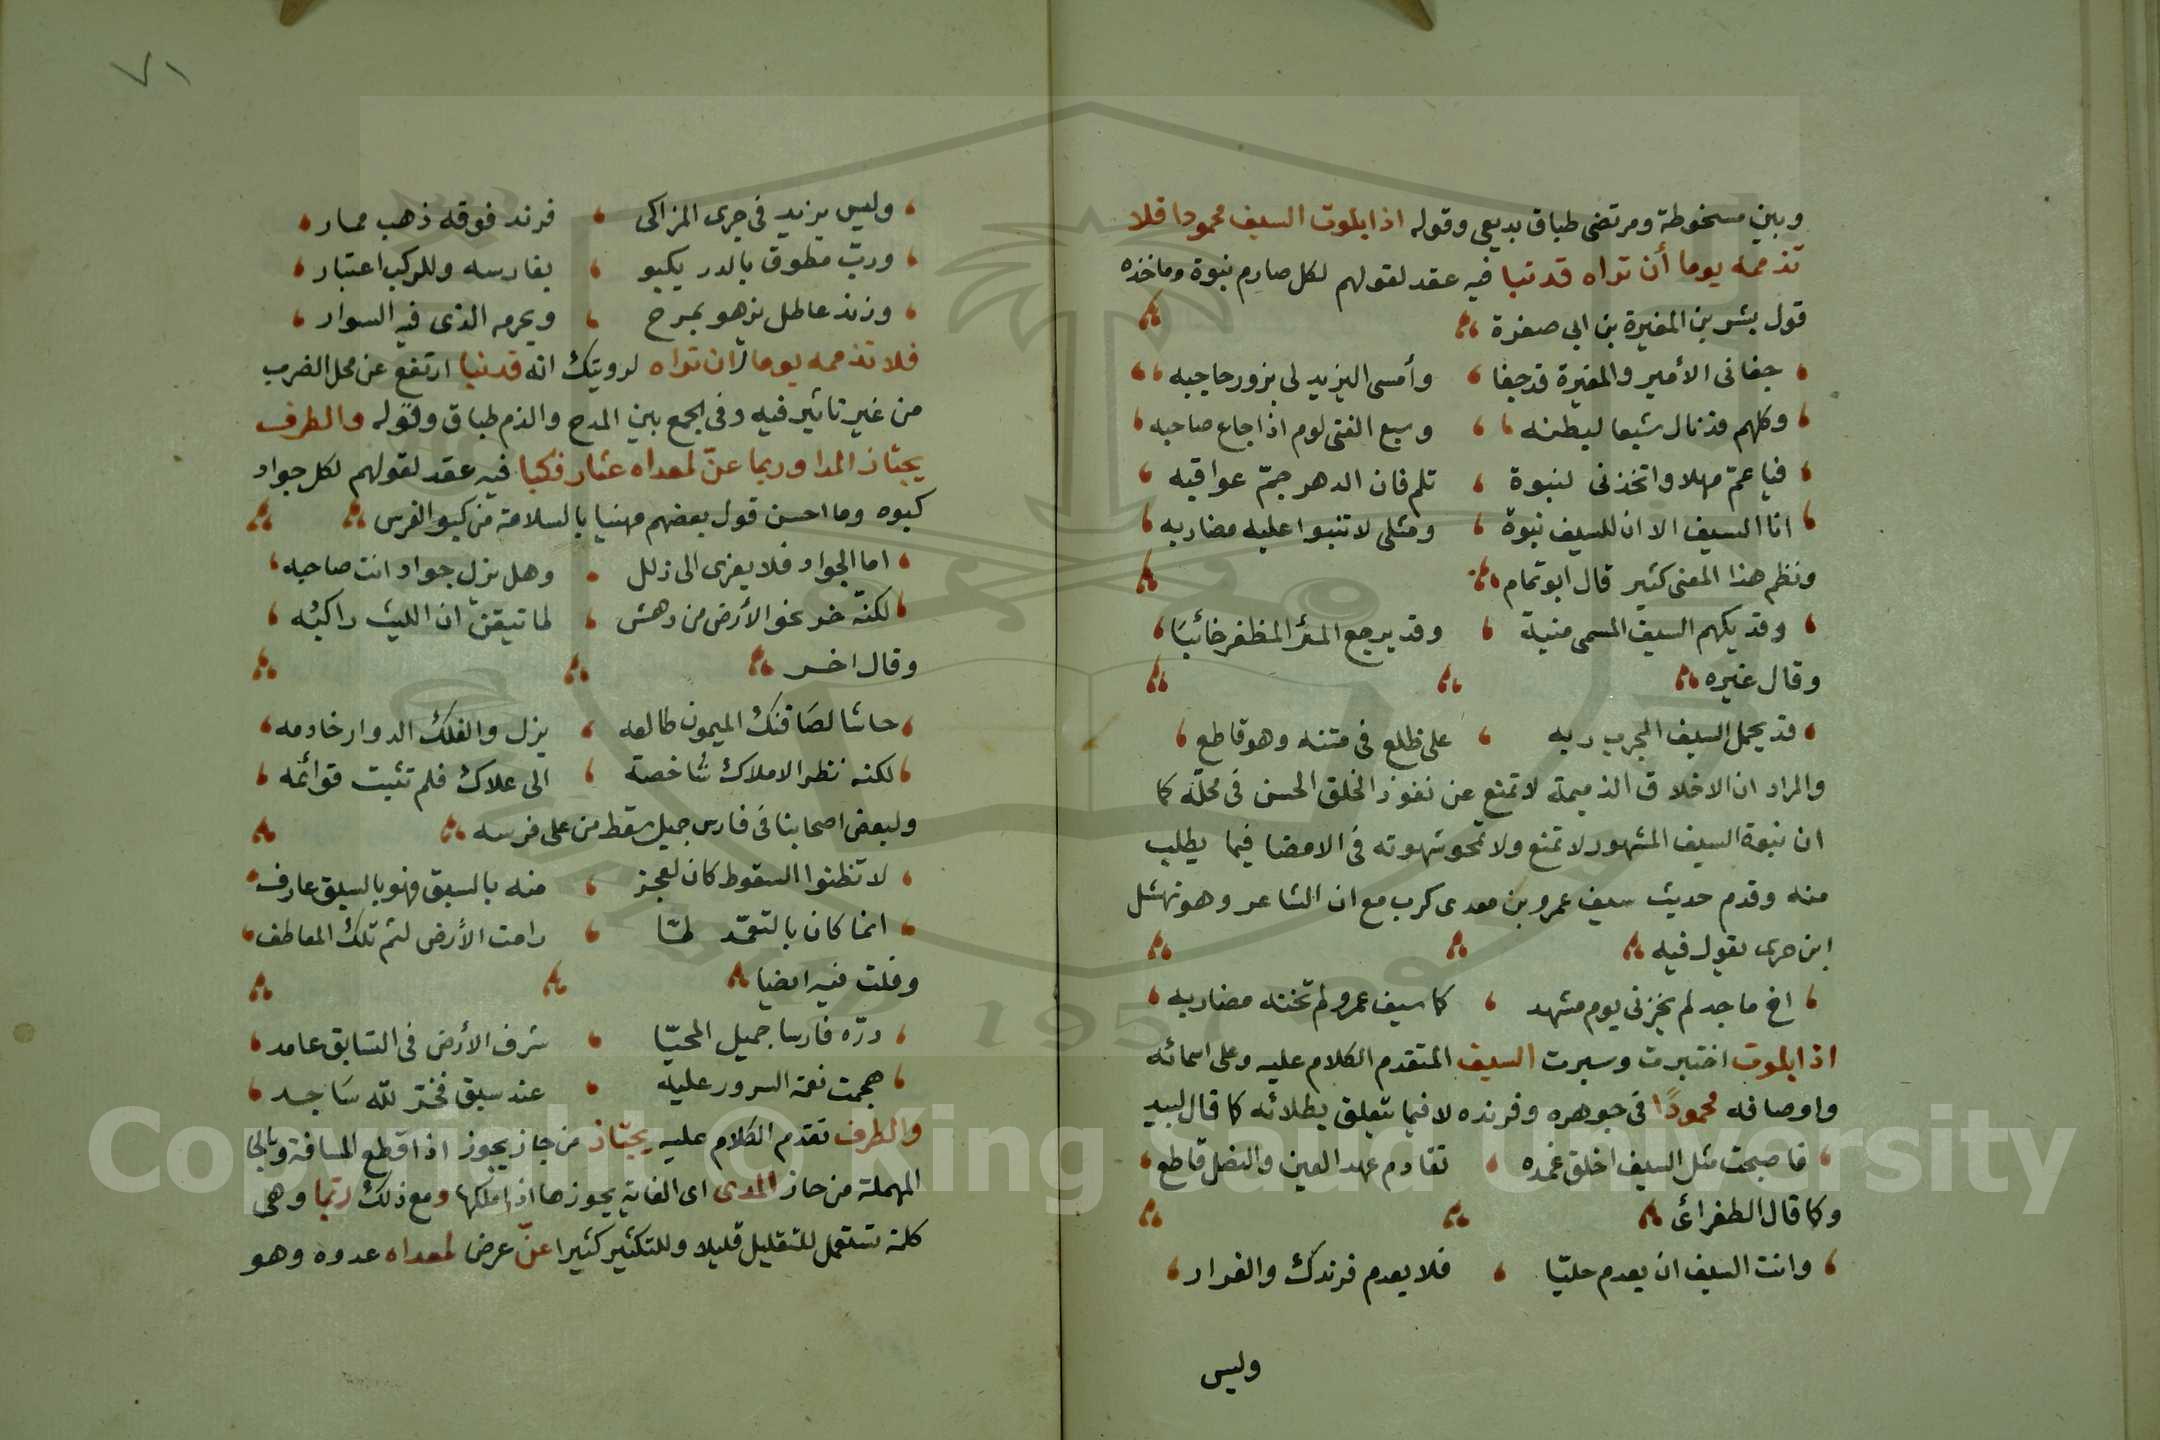 وبين مسخوطة ومرتضى طباق بديعى وقوله اذا بلوت السيف محمودا فلا
تذممه يوما أن تراه قد نبا فيه عقد لقولهم لكل صارم نبوة وماخذه
قول بشر بن المغيرة بن ابى صفرة
جفانى الأمير والمغيرة قد جفا وأمسى اليزيد لى بزور حاجبه
وكلهم قد نال شبعا لبطنه وسبع الفتى لوم اذا جاع صاحبه
فيا عم مهلا واتخذنى لنبوة تلم فان الدهر جمّ عواقبه
انا السيف الا ان للسيف نبوة ومثلى لا تنبوا عليه مضاربه
ونظم هذا المعنى كثير قال ابو تمام
وقد يكهم السيف المسمى منية وقد يرجع المرء المظفر خائبًا
وقال غيره
قد يحمل السيف المجرب ربه على ظلع فى متنه وهو قاطع
والمراد ان الاخلاق الذميمة لا تمنع عن نفوذ الخلق الحسن فى محلّه كما
ان نبوة السيف المشهور لا تمنع ولا تمحو شهوته فى الامضا فيما يطلب
منه وقدم حديث سيف عمرو بن معدى كرب مع ان الشاعر وهو نهشل
ابن حرى يقول فيه
اخ ماجد لم يخزنى يوم مشهد كما سيف عمرو لم تخنه مضاربه
اذا بلوت اختبرت وسبرت السيف المتقدم الكلام عليه وعلى اسمائه
واوصافه محمودًا فى جوهره وفرنده لا فيما يتعلق بطلائه كما قال لبيد
فاصبحت مثل السيف اخلق غمده تقادم عهد القين والنصل قاطع
وكما قال الطغرائى
وانت السيف ان يعدم حليّا فلا يعدم فرندك والغرار
وليس
٧١
وليس يزيد فى جرى المزاكى فرند فوقه ذهب ممار
وربّ مطوق بالدر يكبو بفارسه وللركب اعتبار
وزند عاطل يزهو بمرخ ويحرمه الذى فيه السوار
فلا تذممه يوما ان تراه لرويتك انه قد نبا ارتفع عن محل الضرب
من غير تاثير فيه وفى الجمع بين المدح والذم طباق وقوله والطرف
يجتاز المدا وربما عنّ لمعداه عثار فكبا فيه عقد لقولهم لكل جواد
كبوه وما احسن قول بعضهم مهنيا بالسلامة من كبو الفرس
اما الجواد فلا يعزى الى زلل وهل يزل جواد انت صاحبه
لكنّه خر نحو الأرض من دهش لما تيقن ان الليث راكبه
وقال اخر
حاشا لصافنك الميمون طالعه يزل والفلك الدوار خادمه
لكنه نظر الاملاك شاخصة الى علاك فلم تثبت قوائمه
ولبعض اصحابنا فى فارس جميل سقط من على فرسه
لا تظنوا السقوط كان لعجز منه بالسبق فهو بالسبق عارف
انما كان بالتعمّد لمّا رامت الأرض لثم تلك المعاطف
وقلت فيه ايضيا
درّه فارسا جميل المحيّا شرف الأرض فى التسابق عامد
هجمت نعمة السرور عليه عند سبق فخرّ لله ساجد
والطرف تقدم الكلام عليه يجتاز من جاز يجوز اذا قطع المسافة وبالحا
المهملة من حاز المدى اى الغاية يحوزها اذا ملكها ومع ذلك ربّما وهى
كلمة تستعمل للتقليل قليلا وللتكثير كثيرا عنّ عرض لمعداه عدوه وهو
Copyright © King Saud University
1957